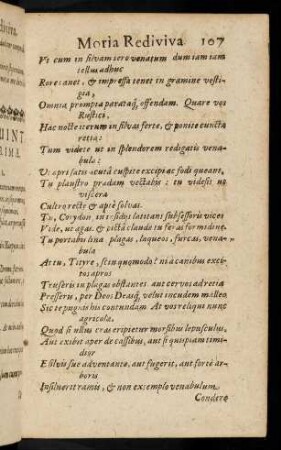 Moria Rediviva 107
Vt cum in silvam iero venatum dum iam iam
tellus adhuc
Rore canet, & impressa tenet in gramine vesti-
gia,
Omnia prompta parataq́, offendam. Quare vos
Rustici,
Hac nocte iterum in silvas ferte, & ponite cuncta
retia:
Tum videte ut in splendorem redigatis vena-
bula:
Vt apri satis acutâ cuspite excipiae fodiqueant,
Tu plaustro prædam vectabis: tu videsis no
viscera
Cultro rectè & aptè solvas.
Tu, Corydon, insidos latitans subsessoris vices
Vide, ut agas. & pictâ claude tu feras formidine
Tu portabis lina plagas, laqueos, furcas, vena-
bula
At tu, Tityre, scin quomodo? ni à canibus exci-
tos apros
Transferis in plagas obstantes aut cervos adretia
Presseris, per Deos Deasq́, velut incudem malleo
Sic te pugnis his contundam At vos reliqui nunc
agricolæ.
Quod si ullus cras eripietur morsibus lepusculus,
Aut exibit aper de cassibus, aut si quispiam timi-
dior
E silvis sue adventante, aut fugerit, aut fortè ar-
boris
Insiluerit ramis, & non extemplo venabulum
Condere